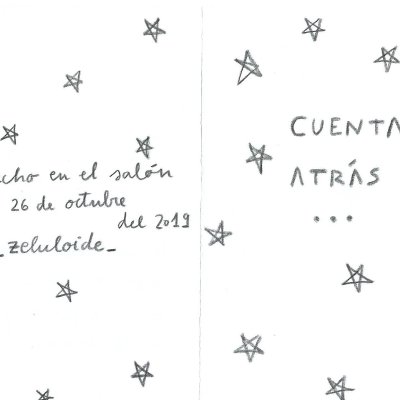 cho en el salón
26 de octubre
del 2019
_zeluloide_
CUENTA
ATRÁS
...